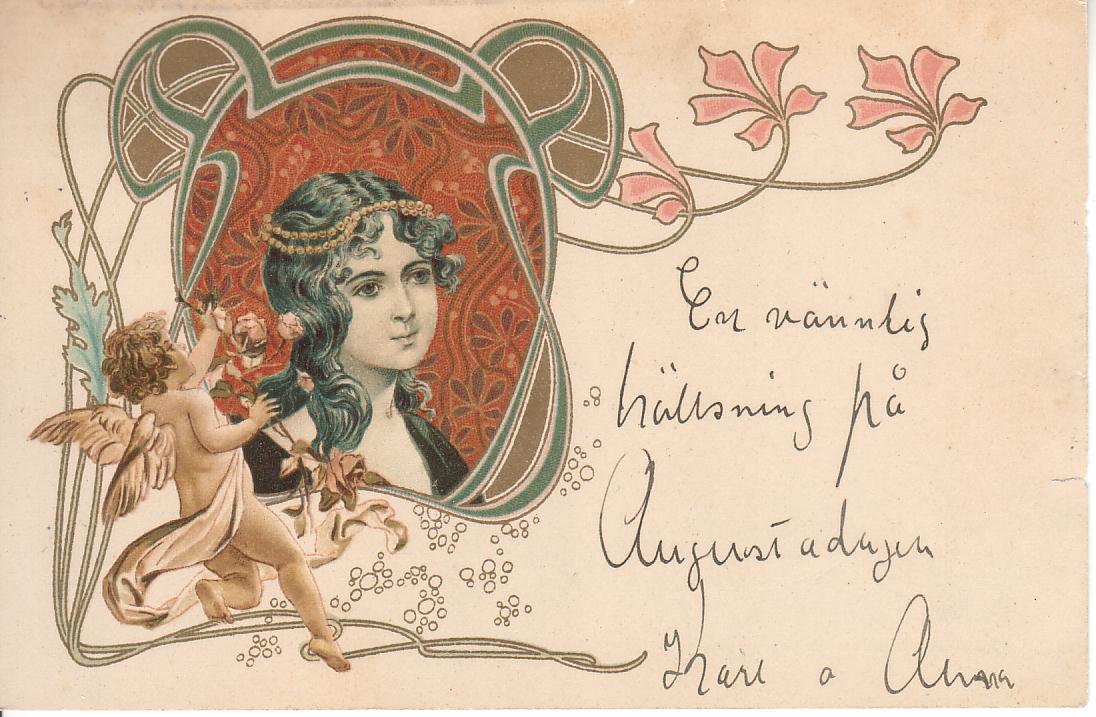 En vännlig
hällsning på
Augustadagen
Karl o Anna